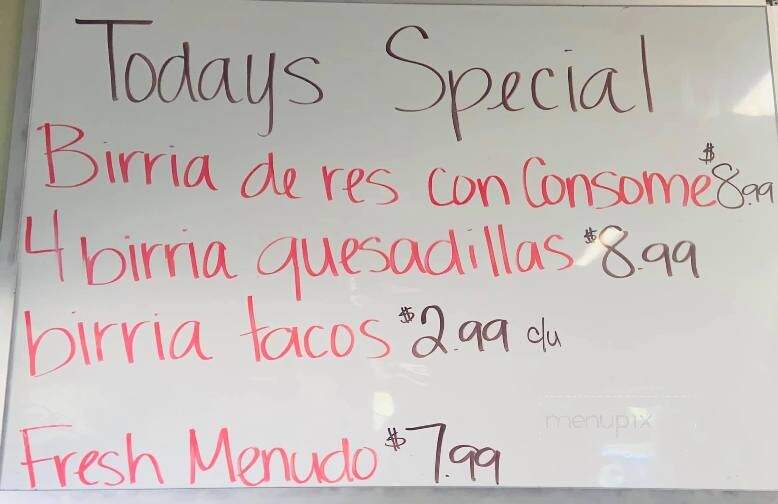 Todays Special
Birria de res con Consome $8.99
4 birria quesadillas $8.99
birria tacos $2.99 c/u
menupix
Fresh Menudo $7.99